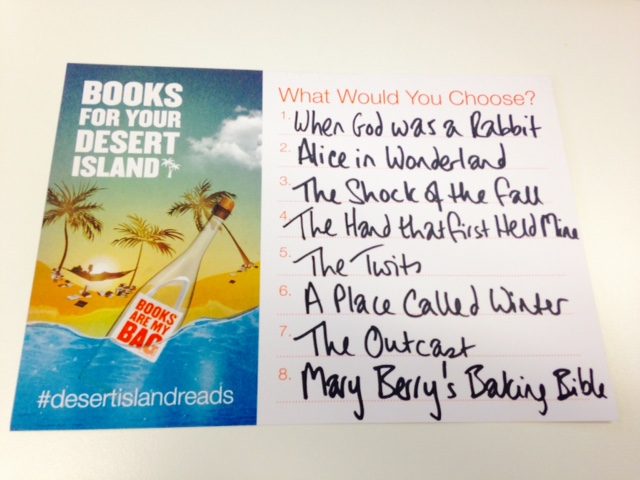 BOOKS
FOR YOUR
DESERT
ISLAND
BOOKS
ARE MY
BAG
#desertislandreads
What Would You Choose?
1. When God was a Rabbit
2. Alice in Wonderland
3. The Shock of the Fall
4. The Hand that first Held Mine
5. The Twits
6. A Place Called Winter
7. The Outcast
8. Mary Berry's Baking Bible